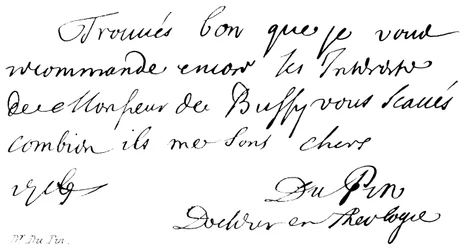 Trouués bon que je vous
recommande encor les Interests
de Monsieur de Bussy vous scaués
combien ils me sont chers
Du Pin
Docteur en Theologie
Mr. Du Pin.